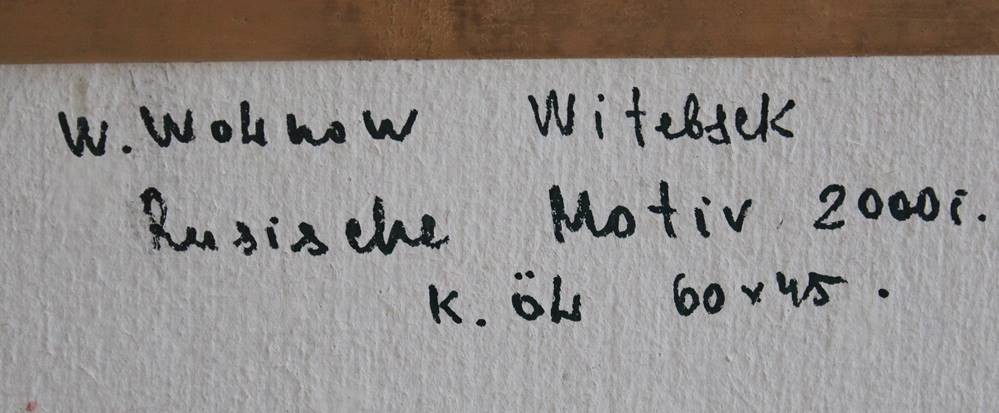 W. Wolnow Witebsck
Rusische Motiv 2000 i.
K. öl 60x45.